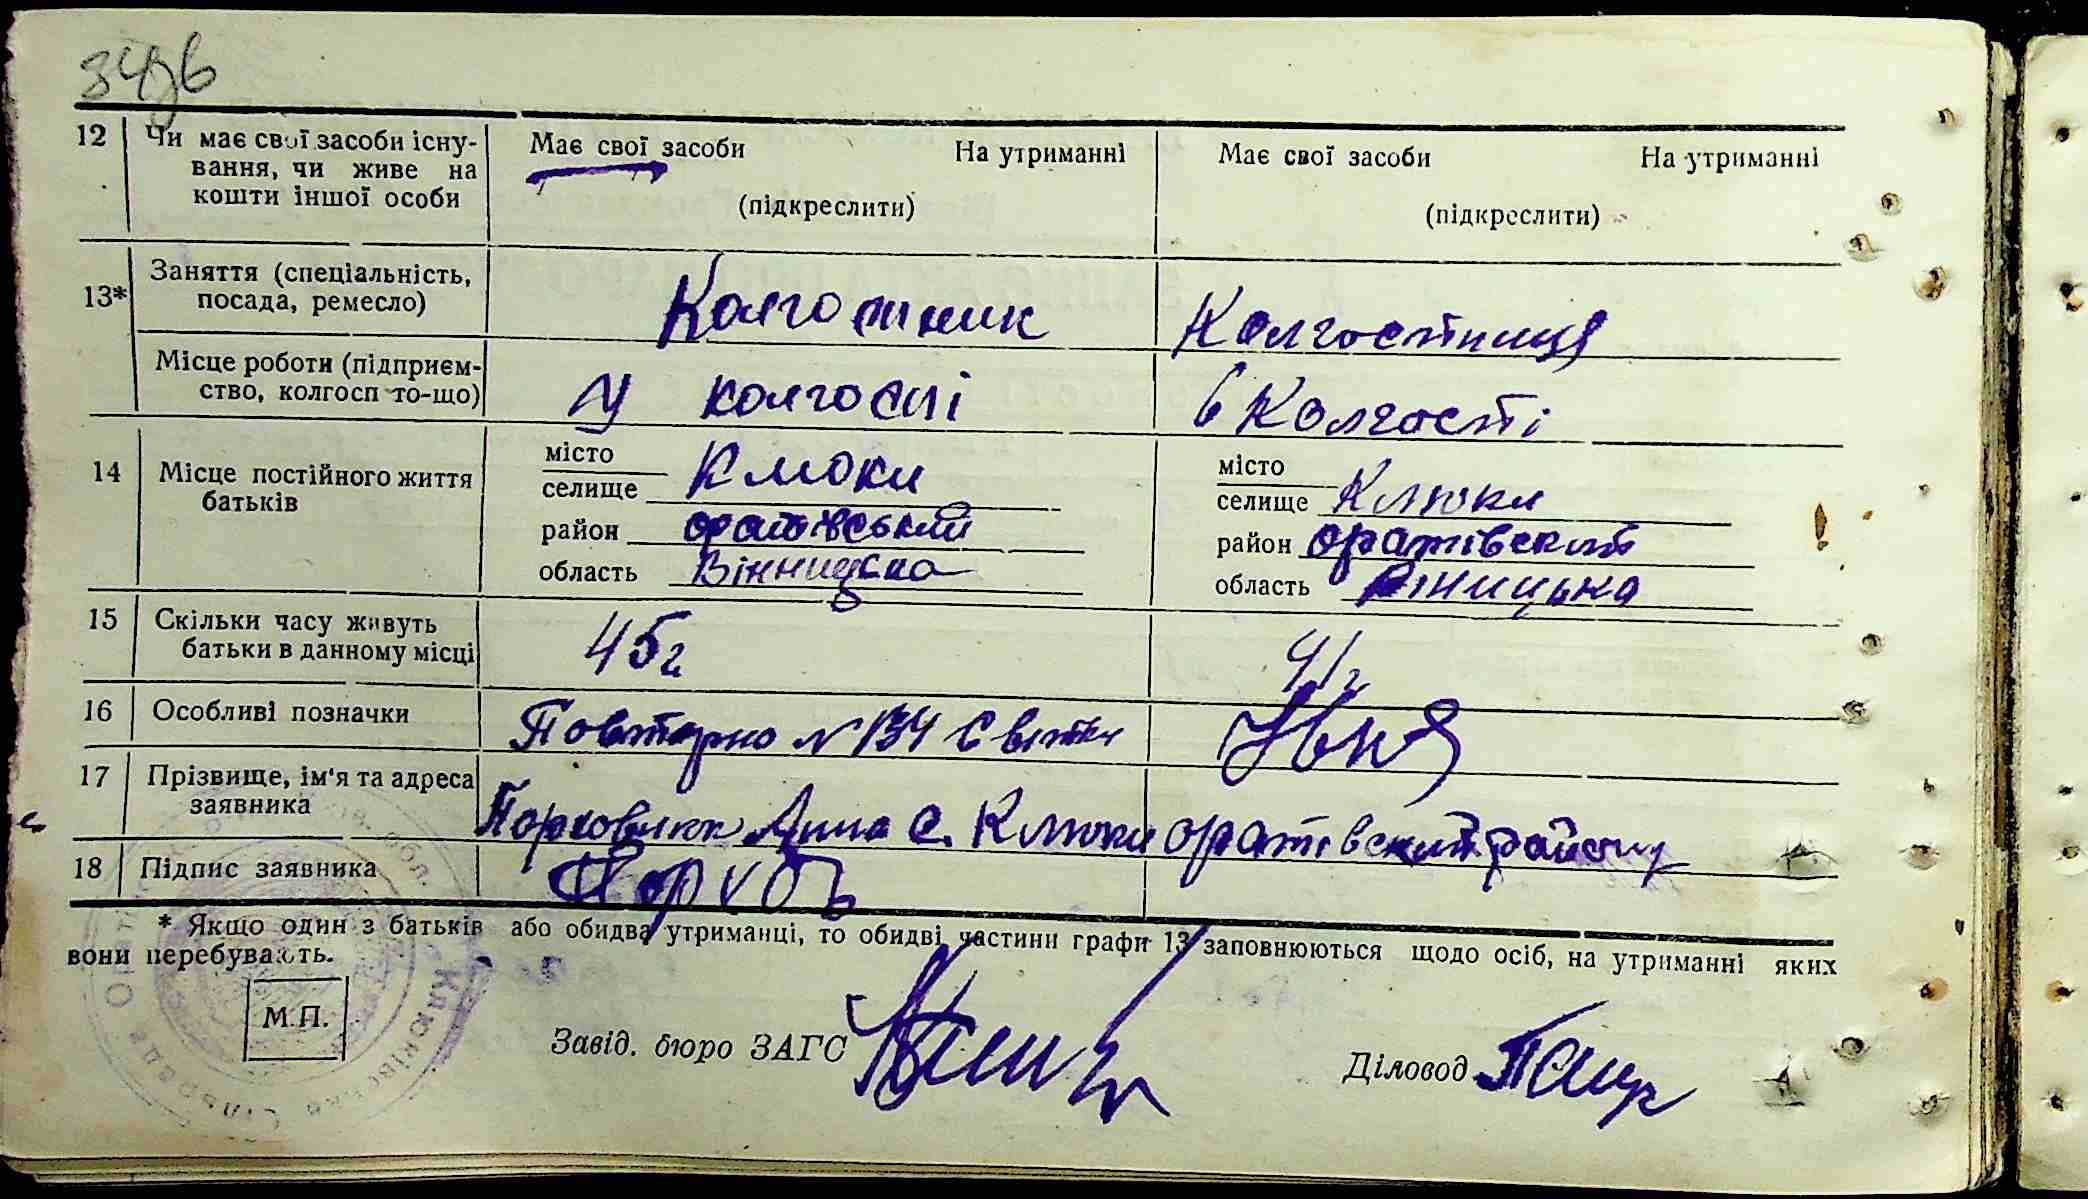 34зв
12 Чи має свої засоби існу- Має свої засоби На утриманні Має свої засоби На утриманні
вання, чи живе на
кошти іншої особи (підкреслити) (підкреслити)
13* Заняття (спеціальність, Колгосник Колгостниця
посада, ремесло)
Місце роботи (підприєм- У колгоспі в Колгості
ство, колгосп то-що)
14 Місце постійного життя місто місто
батьків селище Клюки селище Клюки
район оратівський район оратівский
область Вінницска область Вінницька
15 Скільки часу живуть 45 г 41 г
батьки в данному місці
16 Особливі позначки Повторно № 134
17 Прізвище, ім'я та адреса
заявника Анна с. Клюки оратівский району
18 Підпис заявника
* Якщо один з батьків або обидва утриманці, то обидві частини графи 13 заповнюються щодо осіб, на утриманні яких
вони перебувають.
М.П.
Завід. бюро ЗАГС Діловод